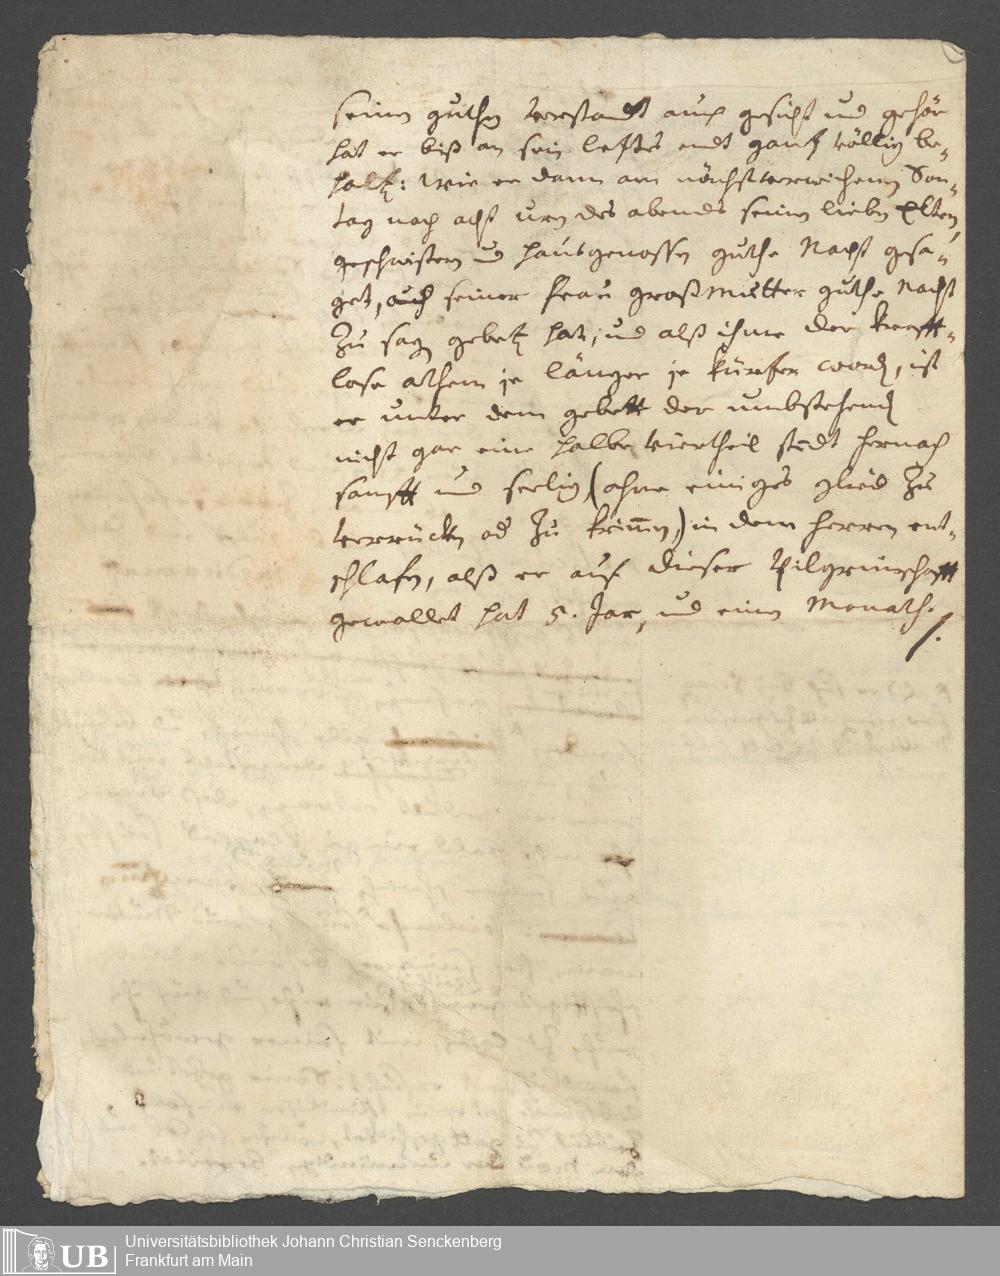 seinen guthen verstandt auch gesicht und gehör
hat er biß an sein letstes endt gantz völlig be-
halten: wie er dann am nächst verwichenen Son-
tag nach acht uren des abends seinen lieben Eltern,
geschwistern und hausgenossen guthe Nacht gesa-
get, auch seiner frau großmutter guthe Nacht
zu sagen gebetten hat; und alß ihme der krafft-
lose athem je länger je kürtzer worden, ist
er unter dem gebett der umbstehenden
nicht gar eine halbe viertheil stdt hernach
sanfft und seelig (ohne einiges glied zu
verrücken oder zu krümmen) in dem Herren ent-
schlafen, alß er auf dieser Pilgrimschafft
gewallet hat 5. Jar, und einen Monath.
UB
Universitätsbibliothek Johann Christian Senckenberg
Frankfurt am Main